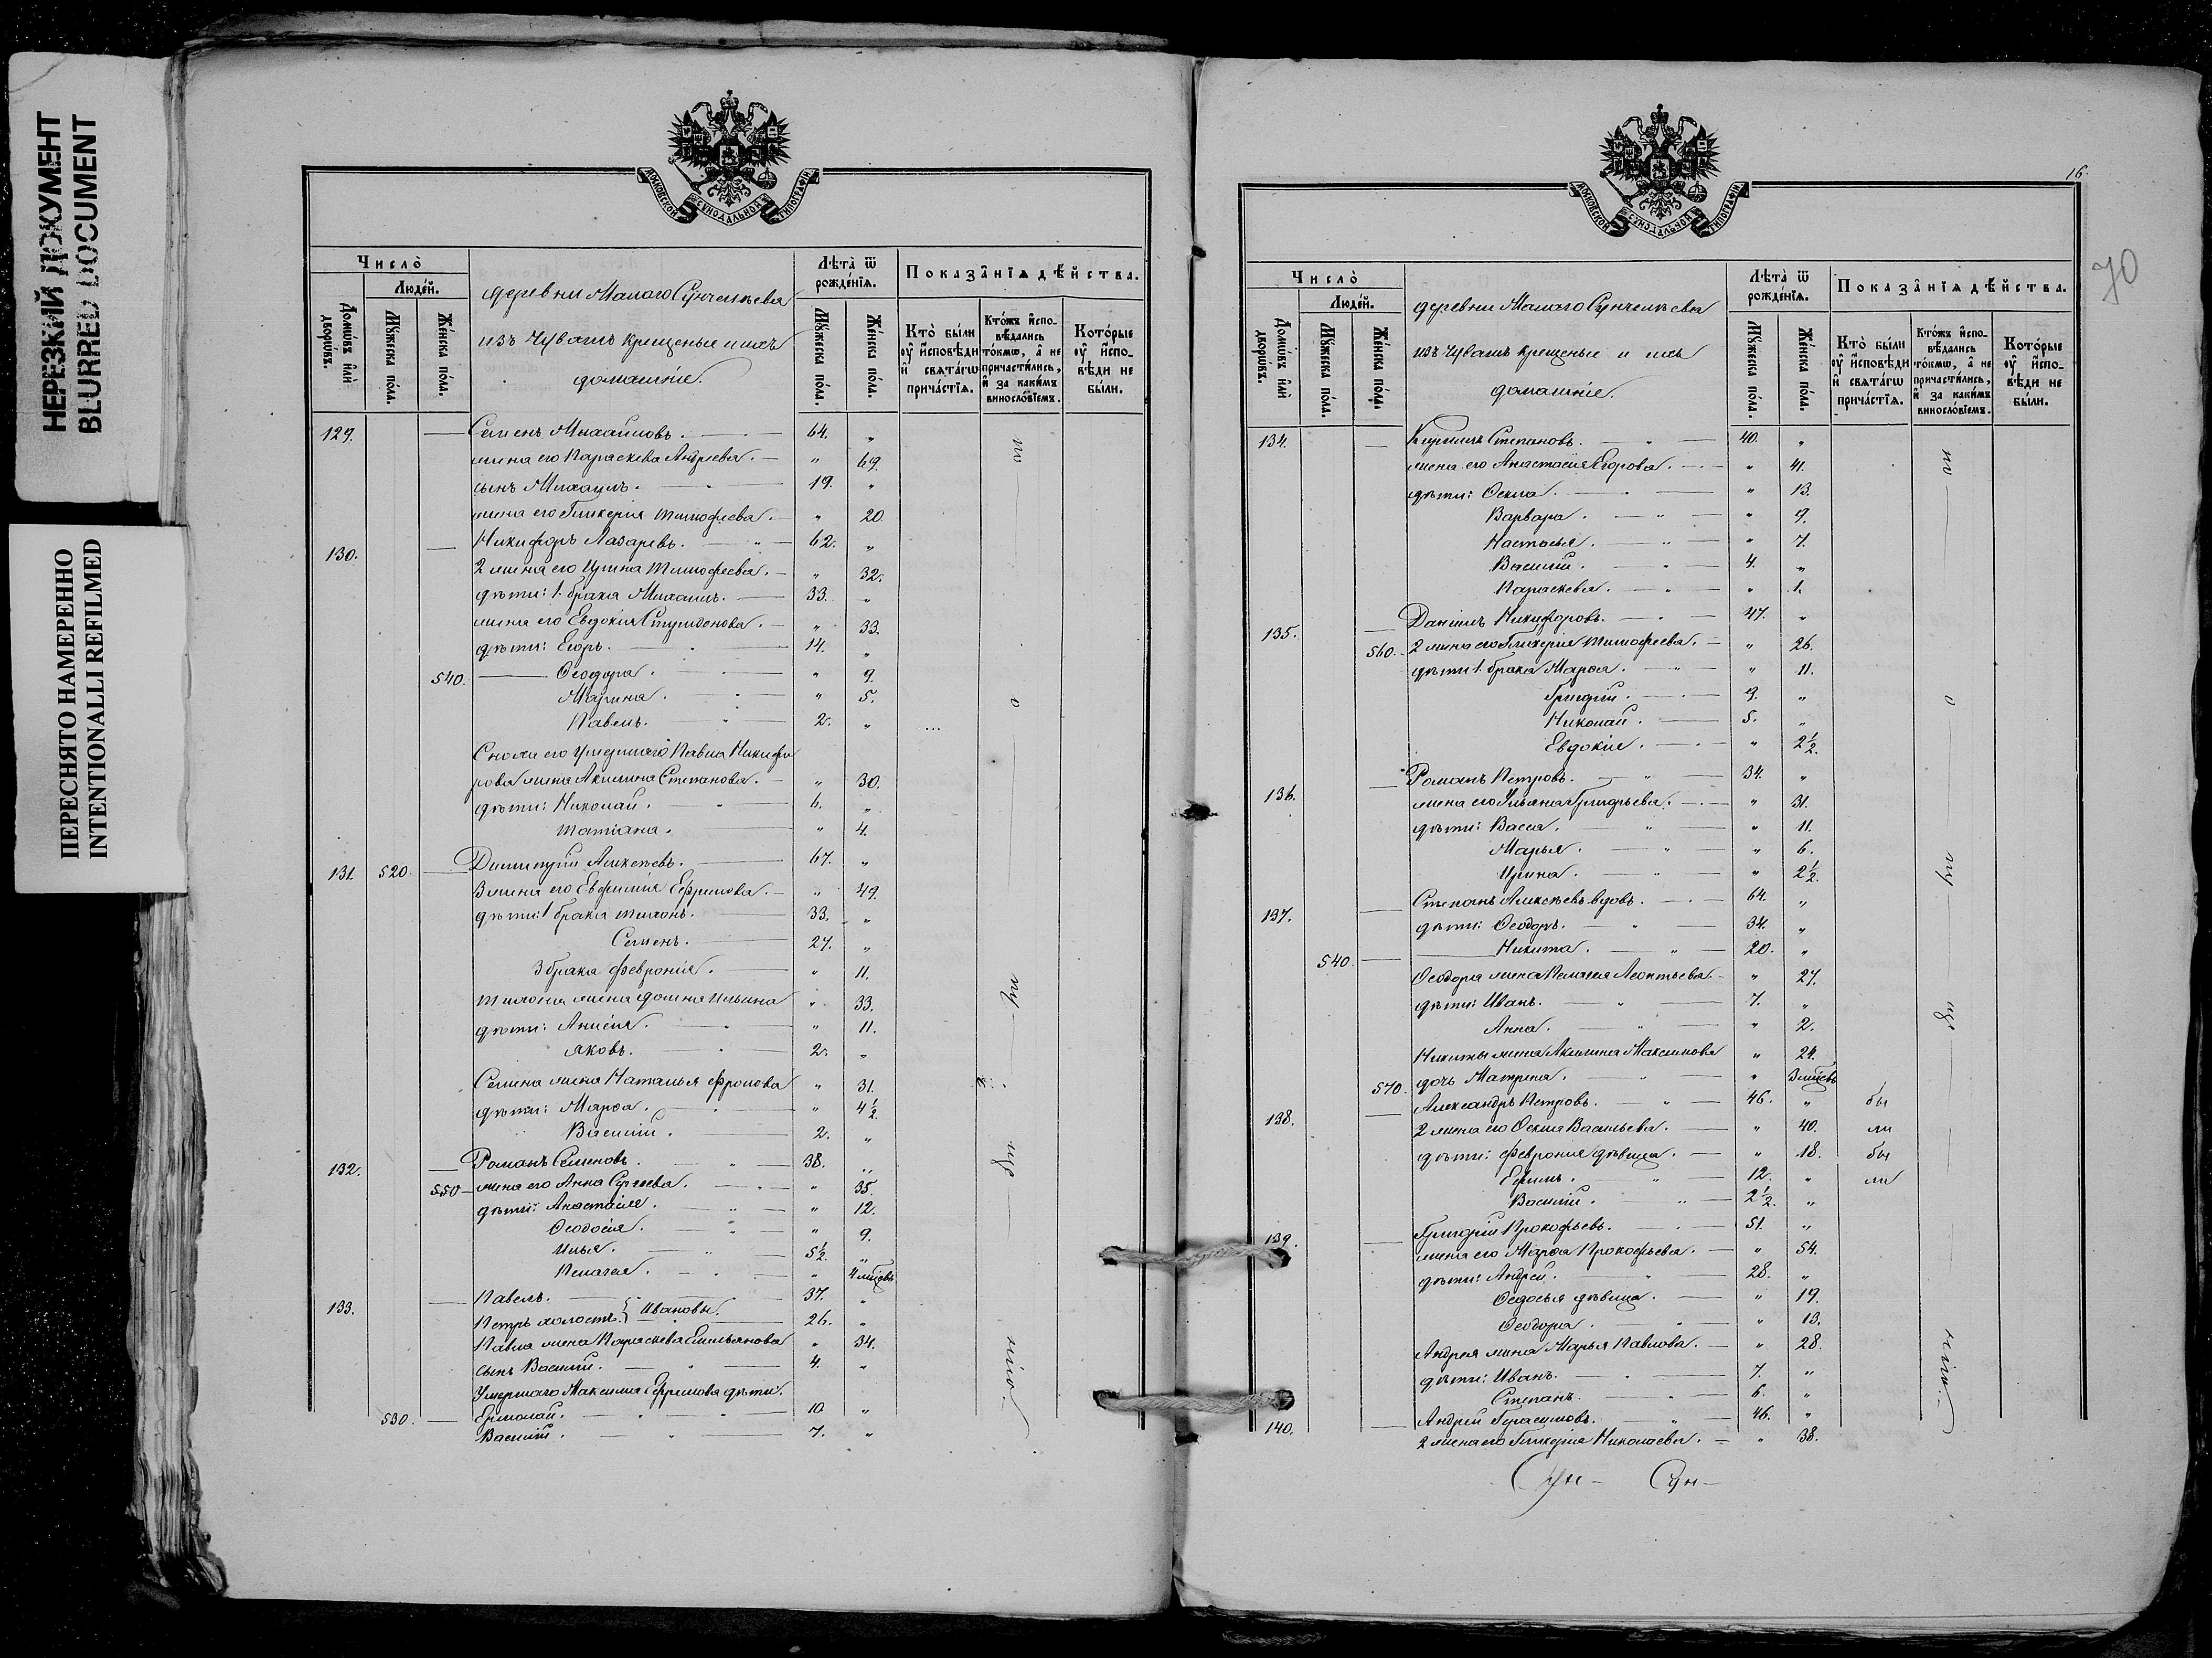 НЕРЕЗКИЙ ДОКУМЕНТ
BLURRED DOCUMENT
ПЕРЕСНЯТО НАМЕРЕННО
INTENTIONALLI REFILMED
МОСКОВСКОЙ СѴНОДАЛЬНОЙ ТИПОГРАФІИ
Число̀
Люде́й.
Домѡ́въ и҆лѝ дворѡ́въ.
Мꙋ́жеска по́ла.
Же́нска по́ла.
деревни Малаго Сунчелеева
изъ Чувашъ крещеные и ихъ
домашніе.
Лѣта̀ ѿ рожде́нїѧ.
Мꙋ́жеска по́ла.
Же́нска по́ла.
Показа̑нїѧ дѣ́йства.
Кто̀ бы́ли ᲂу҆ и҆́сповѣди и҆ свѧта́гѡ прича́стїѧ.
Кто́жъ и҆спо-вѣ́дались то́кмѡ, а҆ не причасти́лись, и҆ за каки́мъ виносло́вїемъ.
Кото́рые ᲂу҆ и҆́спо-вѣди не бы́ли.
129. — Семенъ Михайловъ. 64. „
жена его Параскева Андреева. „ 69.
сынъ Михаилъ. 19. „
жена его Гликерія Тимофеева. „ 20.
130. — Никифоръ Лазаревъ. 62. „
2 жена его Ирина Тимофеева. „ 32.
дѣти: 1. брака Михаилъ. 33. „
жена его Евдокія Спиридонова. „ 33.
дѣти: Егоръ. 14. „
540. — Ѳеодора. „ 9.
Марина. „ 5.
Павелъ. 2. „
Сноха его умершаго Павла Никифо
рова жена Акилина Степанова. „ 30.
дѣти: Николай. 6. „
Татіана. „ 4.
131. 520. — Димитрій Алексѣевъ. 67. „
3 жена его Евфимія Ефримова. „ 49.
дѣти: 1 брака Тихонъ. 33. „
Семенъ. 27. „
3 брака Февронія. „ 11.
Тихона жена Домна Ильина „ 33.
дѣти: Анисія. „ 11.
Яковъ. 2. „
Семена жена Наталья Фролова „ 31.
дѣти: Марѳа. „ 4 1/2.
Василій. 2. „
132. — Романъ Семеновъ. 38. „
550 — жена его Анна Сергеева. „ 35.
дѣти: Анастасія. „ 12.
Ѳеодосія. „ 9.
Илья. 5 1/2. „
Пелагея. „ 4 мѣсяцъ
133. — Павелъ. 37. „
Петръ холостъ. } Ивановы. 26. „
Павла жена Параскева Емельянова „ 34.
сынъ Василій. 4. „
Умершаго Максима Ефремова дѣти.
530. — Ермолай. 10. „
Василій. 7. „
16.
70
МОСКОВСКОЙ СѴНОДАЛЬНОЙ ТИПОГРАФІИ
Число̀
Люде́й.
Домѡ́въ и҆лѝ дворѡ́въ.
Мꙋ́жеска по́ла.
Же́нска по́ла.
деревни Малаго Сунчелеева
изъ Чувашъ крещеные и ихъ
домашніе.
Лѣта̀ ѿ рожде́нїѧ.
Мꙋ́жеска по́ла.
Же́нска по́ла.
Показа̑нїѧ дѣ́йства.
Кто̀ бы́ли ᲂу҆ и҆́сповѣди и҆ свѧта́гѡ прича́стїѧ.
Кто́жъ и҆спо-вѣ́дались то́кмѡ, а҆ не причасти́лись, и҆ за каки́мъ виносло́вїемъ.
Кото́рые ᲂу҆ и҆́спо-вѣди не бы́ли.
134. — Кириллъ Степановъ. 40. „
жена его Анастасія Егорова. „ 41.
дѣти: Ѳекла. „ 13.
Варвара. „ 9.
Настасья. „ 7.
Василій. 4. „
Параскева. „ 1.
135. — Даніилъ Никифоровъ. 47. „
560. 2 жена его Гликерія Тимофеева. „ 26.
дѣти 1. брака Марѳа. „ 11.
Григорій. 9. „
Николай. 5. „
Евдокія. „ 2 1/2.
136. — Романъ Петровъ. 34. „
жена его Ульяна Григорьева. „ 31.
дѣти: Васса. „ 11.
Марья. „ 6.
Ирина. „ 2 1/2.
137. — Степанъ Алексѣевъ вдовъ. 64. „
дѣти: Ѳеодоръ. 34. „
540. — Никита. 20. „
Ѳеодора жена Пелагея Леонтьева. „ 27.
дѣти: Иванъ. 7. „
Анна. „ 2.
Никиты жена Акилина Максимова „ 24.
570. дочь Матрена. „ 3 мѣсяцъ
138. — Александръ Петровъ. 46. „ бы
2 жена его Ѳекла Васильева. „ 40. ли
дѣти: Февронія дѣвица. „ 18. бы
Ефимъ. 12. „ ли
Василій. 2 1/2. „
139. — Григорій Прокофьевъ. 51. „
жена его Марѳа Прокофьева. „ 54.
дѣти: Андрей. 28. „
Ѳедосья дѣвица. „ 19.
Ѳеодора. „ 13.
Андрея жена Марья Павлова. „ 28.
дѣти: Иванъ. 7. „
Степанъ. 6. „
140. — Андрей Герасимовъ. 46. „
2 жена его Гликерія Николаева. „ 38.